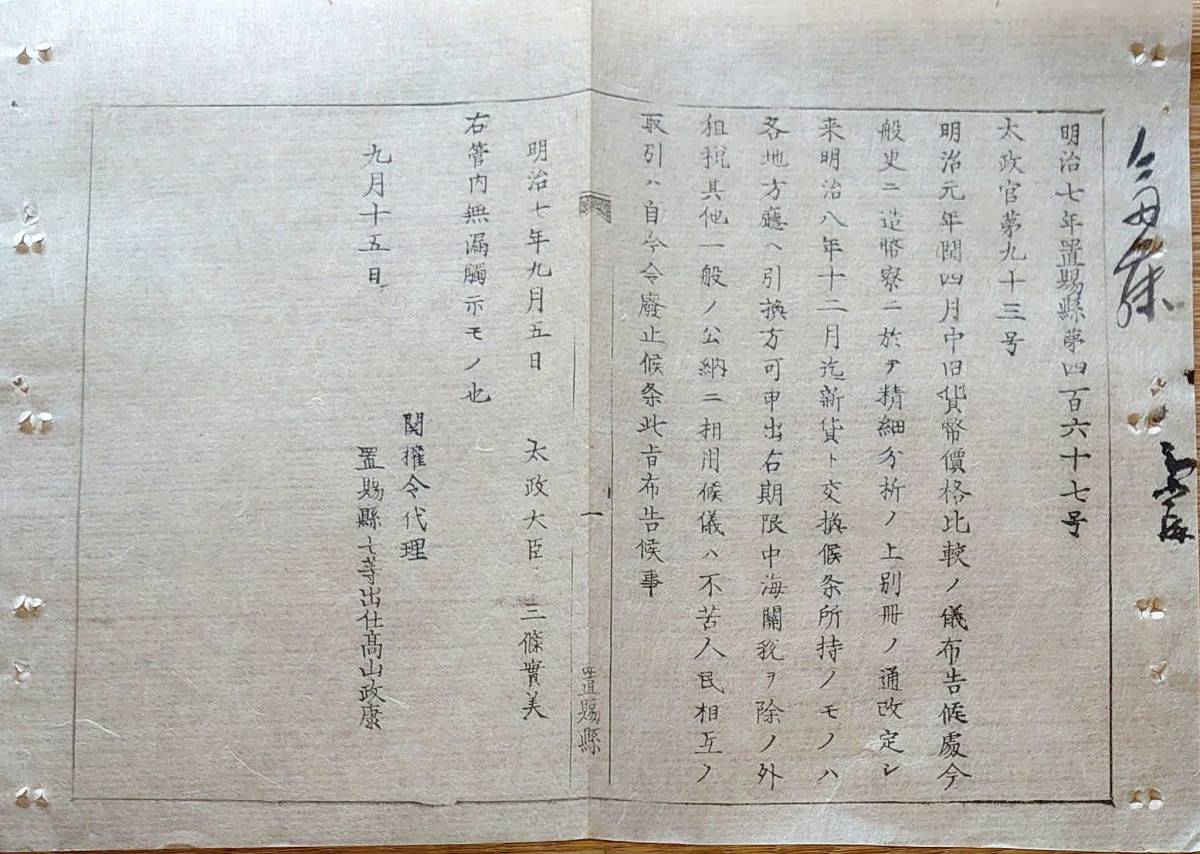 明治七年置賜縣第四百六十七号
太政官第九十三号
明治元年閏四月中旧貨幣價格比較ノ儀布告候處今
般史ニ造幣寮ニ於テ精細分析ノ上別冊ノ通改定シ
来明治八年十二月迄新貨ト交換候条所持ノモノハ
各地方廳ヘ引換方可申出右期限中海關税ヲ除ノ外
租税其他一般ノ公納ニ相用候儀ハ不苦人民相互ノ
取引ハ自今令廢止候条此旨布告候事
明治七年九月五日 太政大臣 三條實美
右管内無漏觸示モノ也
九月十五日
関權令代理
置賜縣七等出仕髙山政康
一
置賜縣